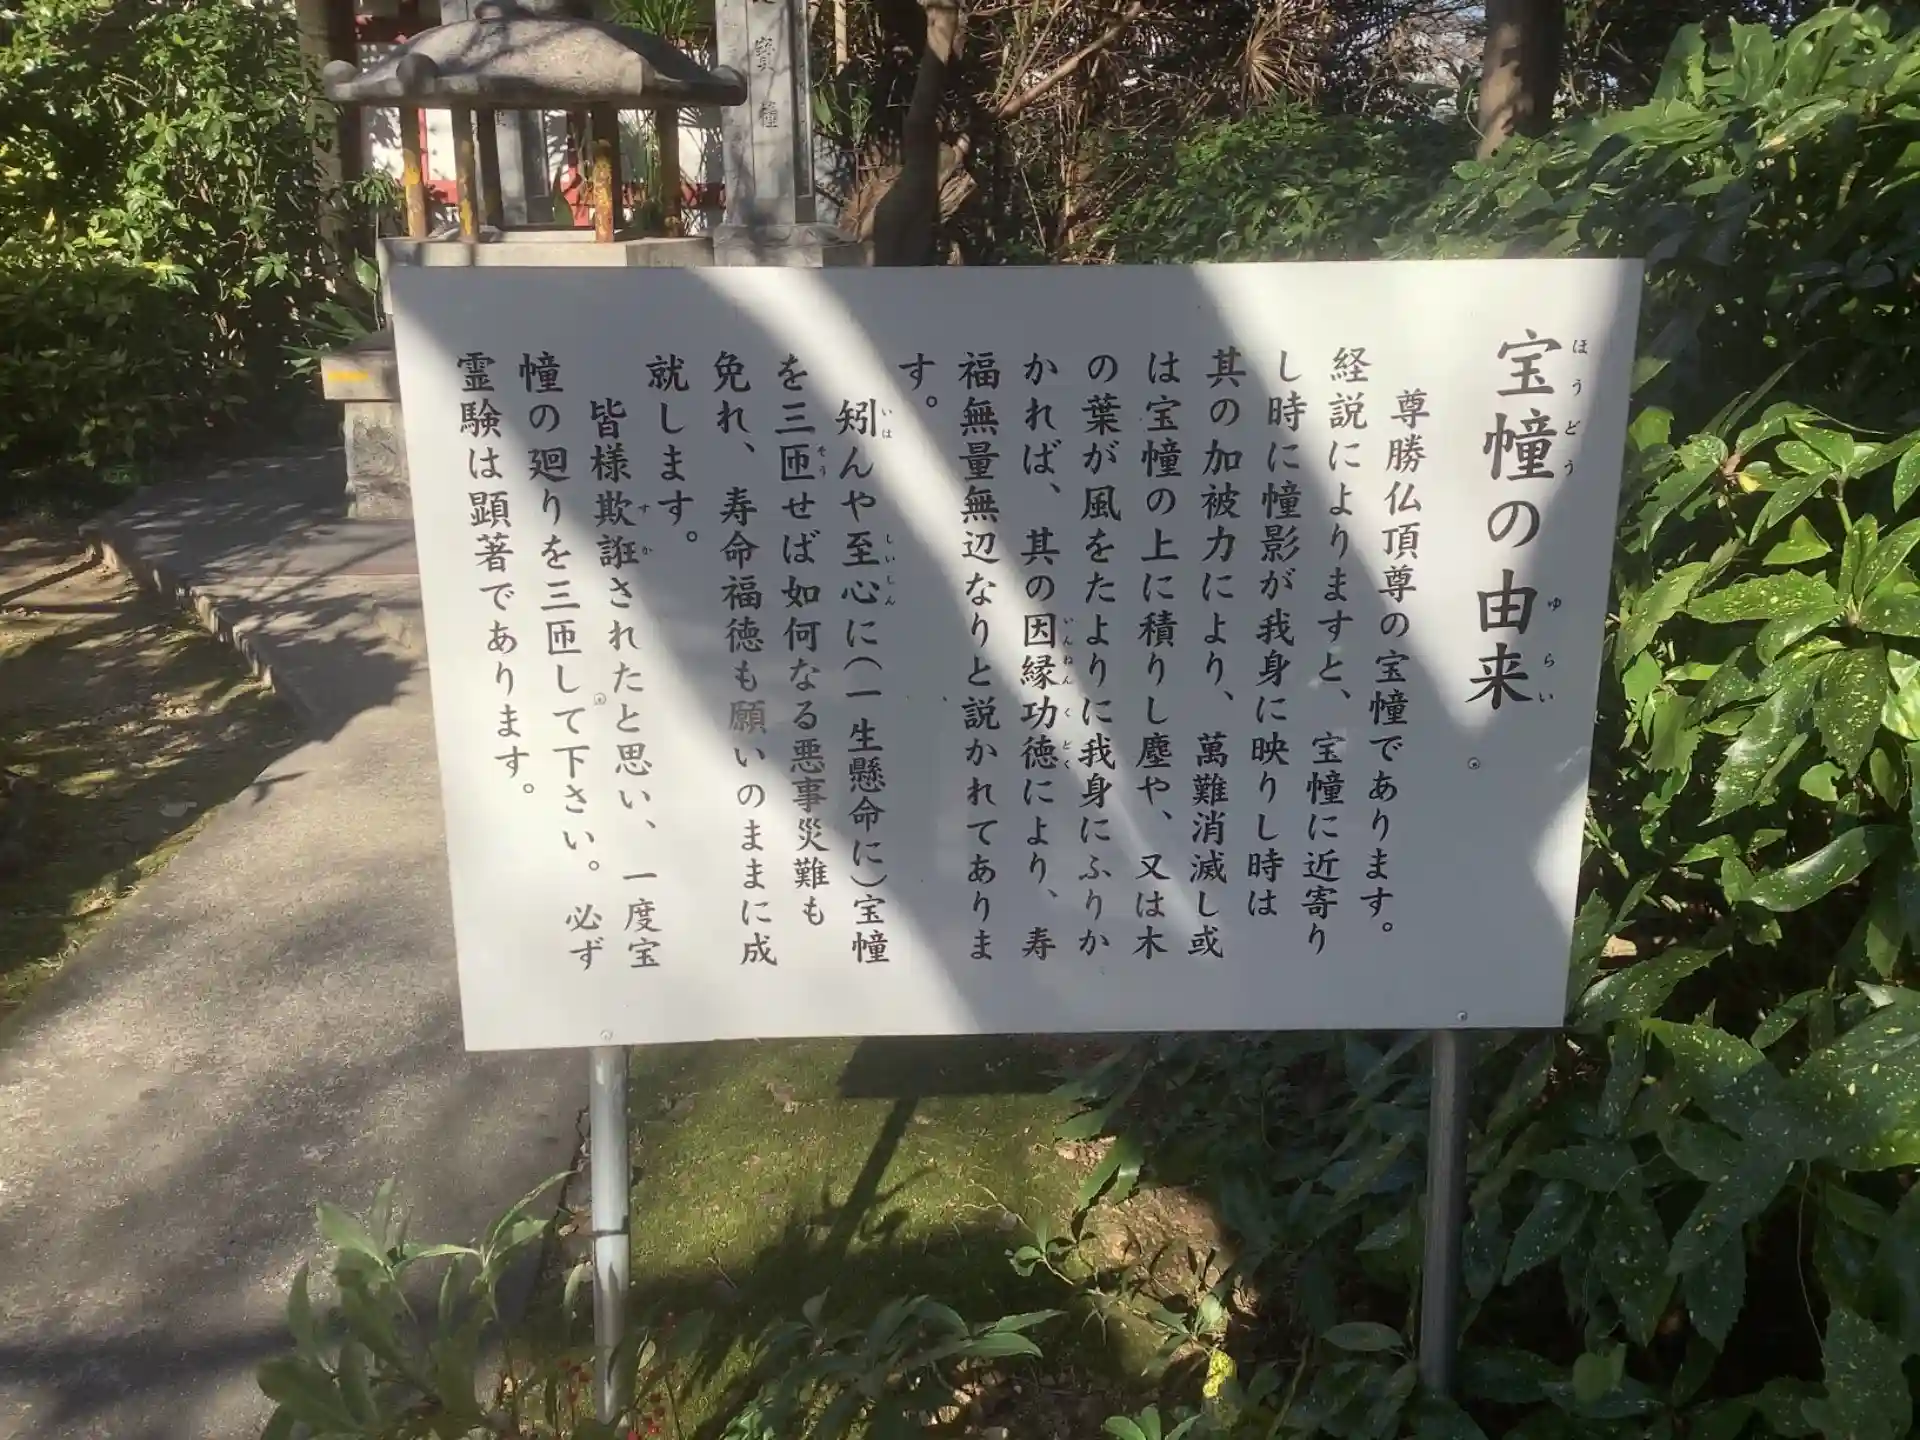 宝幢の由来
ほうどう
ゆらい
尊勝仏頂尊の宝幢であります。
経説によりますと、宝幢に近寄り
し時に幢影が我身に映りし時は
其の加被力により、萬難消滅し或
は宝幢の上に積りし塵や、又は木
の葉が風をたよりに我身にふりか
かれば、其の因縁功徳により、寿
いんねんくどく
福無量無辺なりと説かれてありま
す。
矧んや至心に(一生懸命に)宝幢
いは
しいしん
を三匝せば如何なる悪事災難も
そう
免れ、寿命福徳も願いのままに成
就します。
皆様欺誑されたと思い、一度宝
すか
幢の廻りを三匝して下さい。必ず
霊験は顕著であります。
寳幢